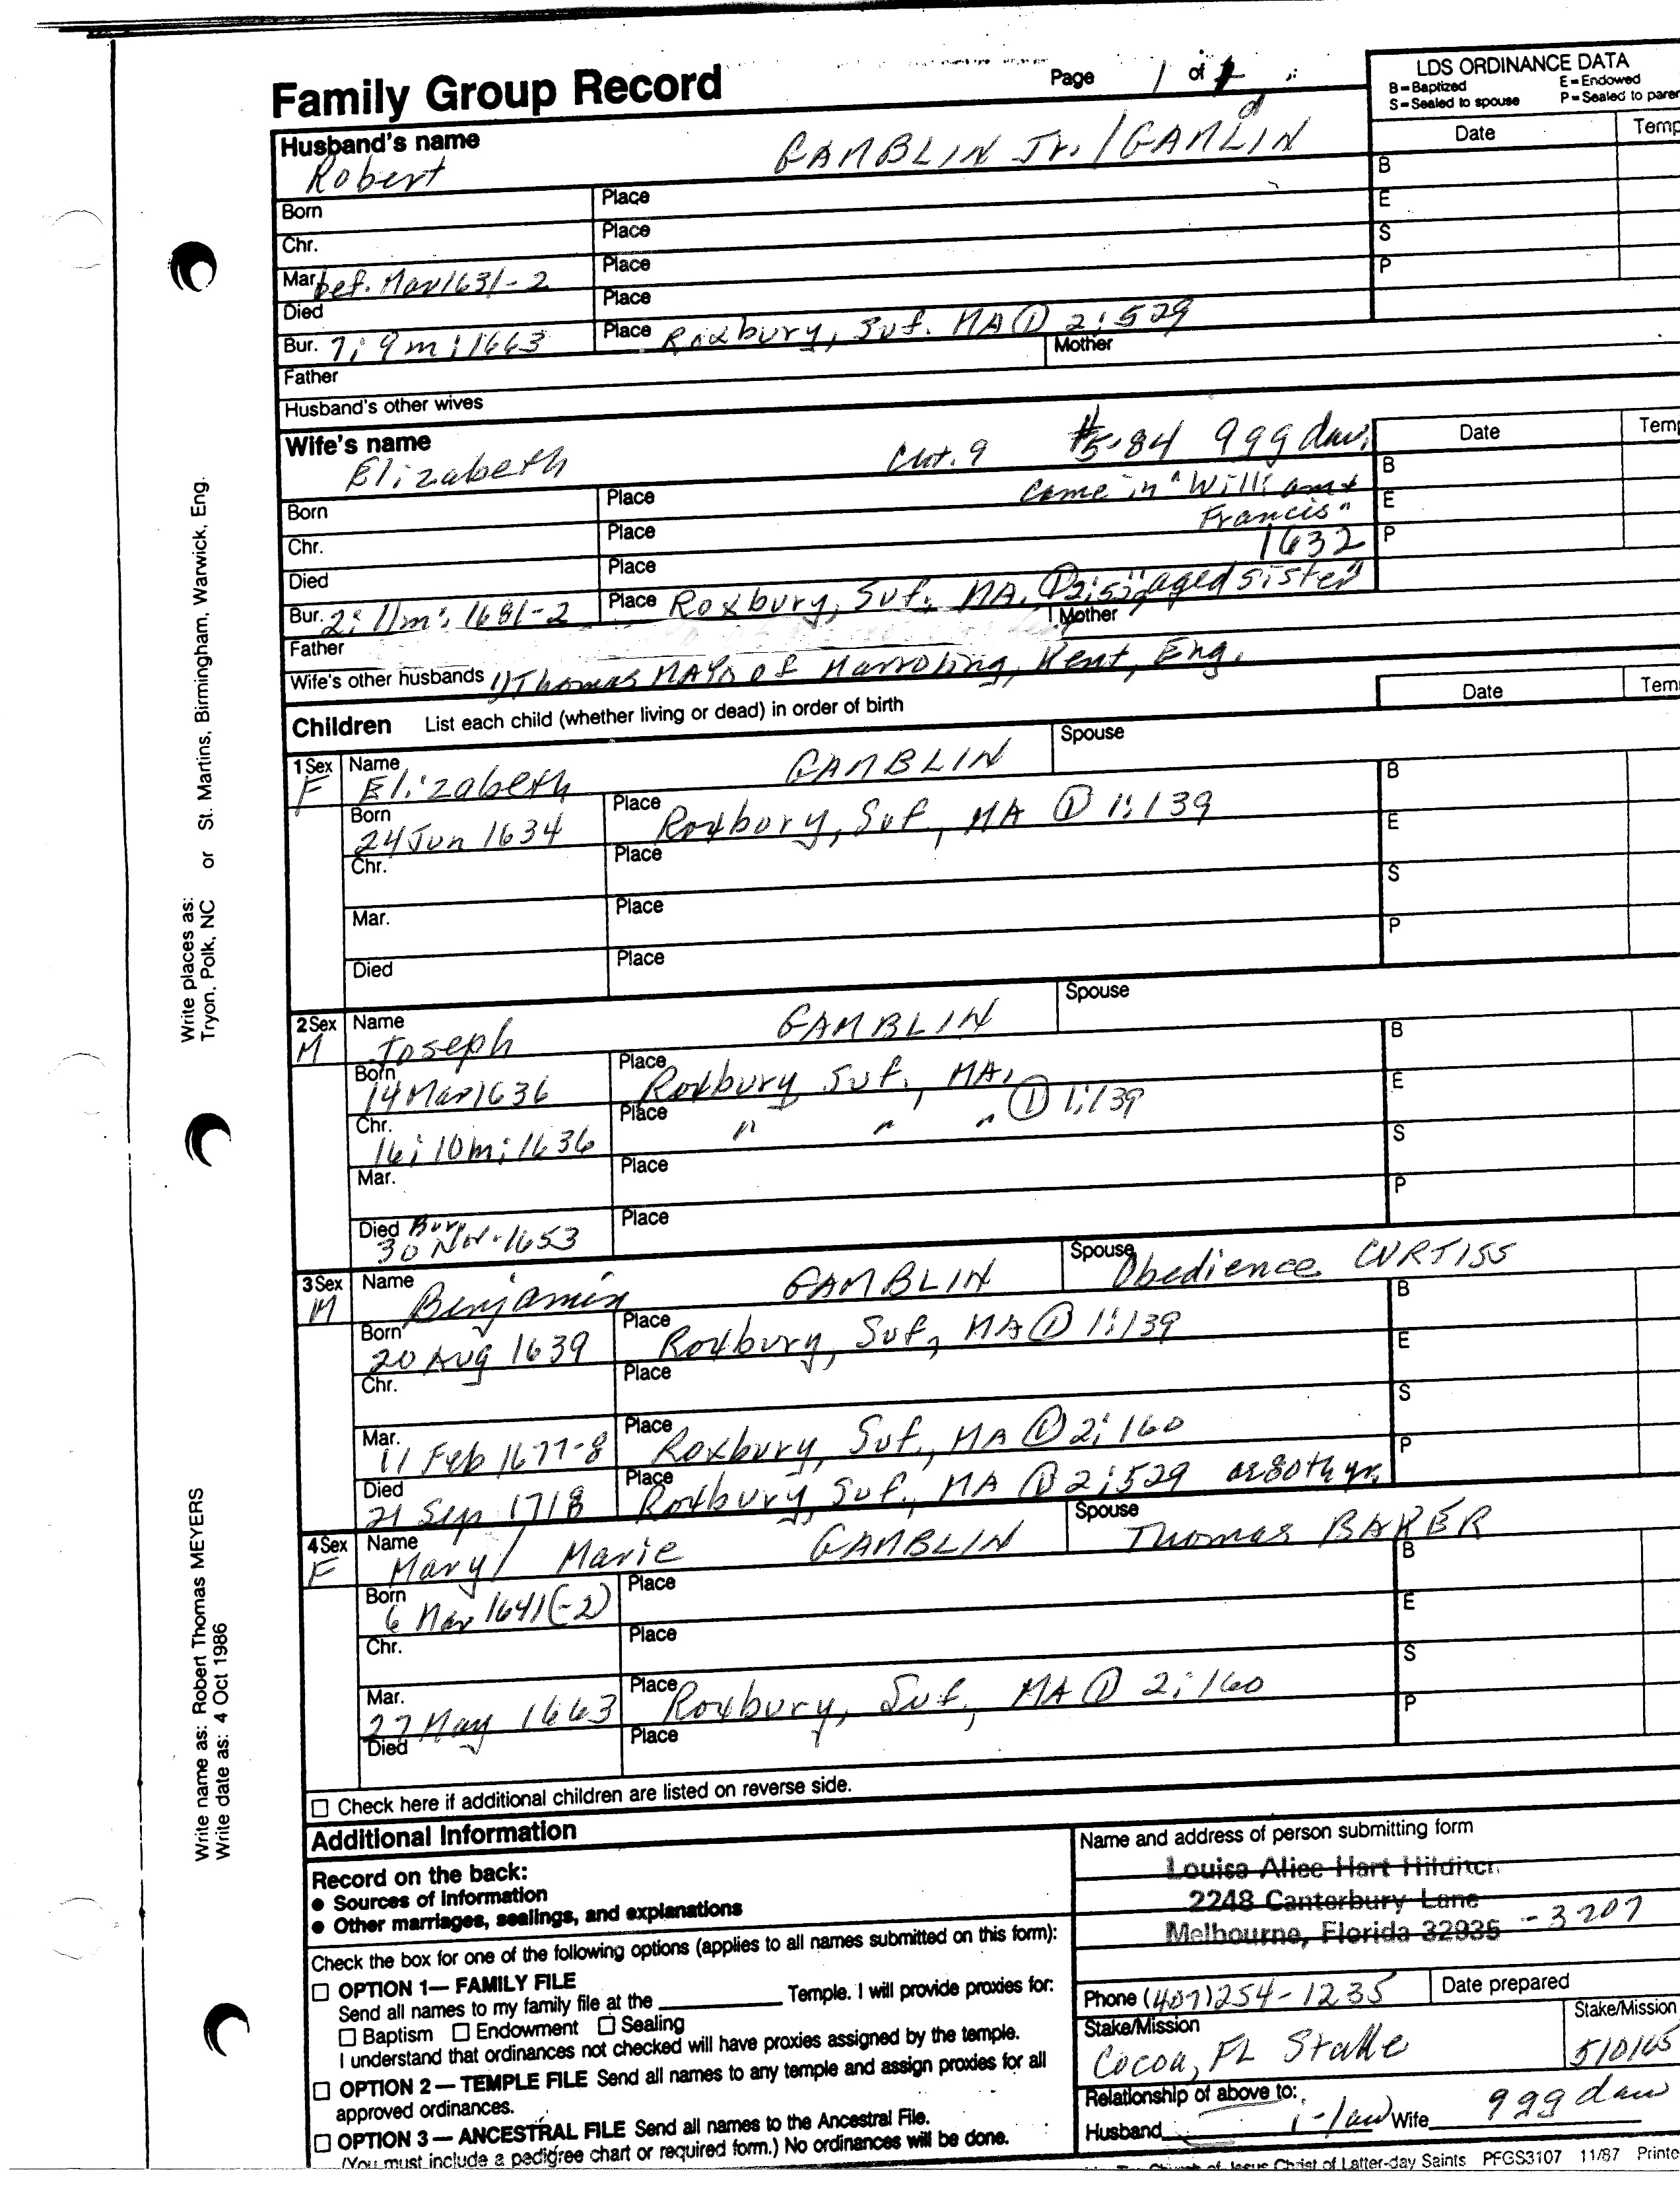 Family Group Record
Page 1 of
LDS ORDINANCE DATA
B=Baptized E=Endowed
S=Sealed to spouse P=Sealed to paren
Husband's name
Robert GAMBLIN Jr. / GAMLIN
Date Temp
B
Born Place
E
Chr. Place
S
Mar. bef. Mar 1631-2 Place
P
Died Place
Bur. 7; 9m; 1663 Place Roxbury, Suf. MA ① 2; 529
Father Mother
Husband's other wives
Wife's name
Elizabeth Cht. 9 #5-84 9gg dau.
Date Temp
B
Born Place came in "William &
E
Francis"
Chr. Place 1632
P
Died Place
Bur. 2; 11m; 1681-2 Place Roxbury, Suf., MA. ① 2; 529 "aged sister"
Father Mother
Wife's other husbands 1) Thomas MAYO of Harroling, Kent, Eng.
Children List each child (whether living or dead) in order of birth
Date Tem
1 Sex Name Spouse
F Elizabeth GAMBLIN
B
Born Place
24 Jun 1634 Roxbury, Suf., MA ① 1; 139
E
Chr. Place
S
Mar. Place
P
Died Place
2 Sex Name Spouse
M Joseph GAMBLIN
B
Born Place
14 Mar 1636 Roxbury Suf., MA,
E
Chr. Place
16; 10m; 1636 " " " ① 1; 139
S
Mar. Place
P
Died Bur. Place
30 Nov. 1653
3 Sex Name Spouse
M Benjamin GAMBLIN Obedience CURTISS
B
Born Place
20 Aug 1639 Roxbury, Suf, MA ① 1; 139
E
Chr. Place
S
Mar. Place
11 Feb 1677-8 Roxbury, Suf., MA ① 2; 160
P
Died Place
21 Sep 1718 Roxbury, Suf., MA ① 2; 529 ae 80th yr.
4 Sex Name Spouse
F Mary / Marie GAMBLIN Thomas BAKER
B
Born Place
6 Mar 1641(-2)
E
Chr. Place
S
Mar. Place
27 May 1663 Roxbury, Suf., MA ① 2; 160
P
Died Place
☐ Check here if additional children are listed on reverse side.
Additional Information
Record on the back:
● Sources of information
● Other marriages, sealings, and explanations
Check the box for one of the following options (applies to all names submitted on this form):
☐ OPTION 1— FAMILY FILE
Send all names to my family file at the ____________ Temple. I will provide proxies for:
☐ Baptism ☐ Endowment ☐ Sealing
I understand that ordinances not checked will have proxies assigned by the temple.
☐ OPTION 2 — TEMPLE FILE Send all names to any temple and assign proxies for all
approved ordinances.
☐ OPTION 3 — ANCESTRAL FILE Send all names to the Ancestral File.
(You must include a pedigree chart or required form.) No ordinances will be done.
Name and address of person submitting form
Louisa Alice Hart Hilditch
2248 Canterbury Lane
Melbourne, Florida 32935 -3207
Phone (407) 254-1235 Date prepared
Stake/Mission Stake/Mission
Cocoa, FL Stake 510165
Relationship of above to:
Husband i-law Wife 9gg dau
Church of Jesus Christ of Latter-day Saints PFGS3107 11/87 Printe
Write places as: Tryon, Polk, NC or St. Martins, Birmingham, Warwick, Eng.
Write name as: Robert Thomas MEYERS
Write date as: 4 Oct 1986